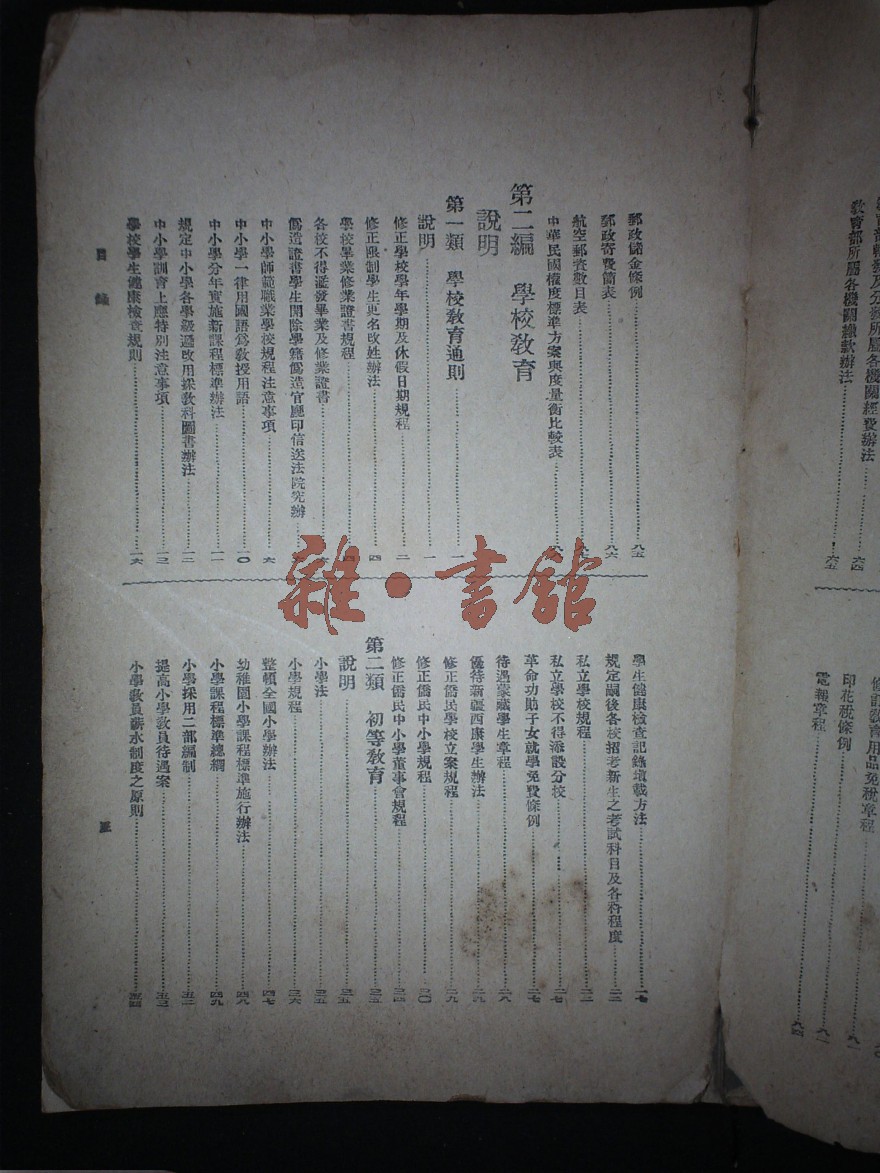 教育部所屬各機關繳款辦法……六四
六五
修訂教育用品免稅章程
印花稅條例……九一
電報章程……九二
九四
郵政儲金條例……八五
郵政寄費簡表……八六
航空郵資數目表
中華民國權度標準方案與度量衡比較表
第二編 學校教育
說明
第一類 學校教育通則……一
說明……一
修正學校學年學期及休假日期規程……二
修正限制學生更名改姓辦法……四
學校畢業修業證書規程……四
各校不得濫發畢業及修業證書
偽造證書學生開除學籍偽造官廳印信送法院究辦
中小學師範職業學校規程注意事項……六
中小學一律用國語爲教授用語……一〇
中小學分年實施新課程標準辦法……一一
規定中小學各學級遞改用採教科圖書辦法……一二
中小學訓育上應特別注意事項……一三
學校學生健康檢查規則……一六
學生健康檢查記錄填載方法……一七
規定嗣後各校招考新生之考試科目及各科程度……二二
私立學校規程……二二
私立學校不得添設分校……二七
革命功勛子女就學免費條例……二七
待遇蒙藏學生章程……二八
優待新疆西康學生辦法……二九
修正僑民學校立案規程……二九
修正僑民中小學規程……三〇
修正僑民中小學董事會規程……三四
第二類 初等教育……三五
說明……三五
小學法……三五
小學規程……三六
整頓全國小學辦法……四七
幼稚園小學課程標準施行辦法……四八
小學課程標準總綱……四九
小學採用二部編制……五二
提高小學教員待遇案……五三
小學教員薪水制度之原則……五四
目錄
五
雜·書館